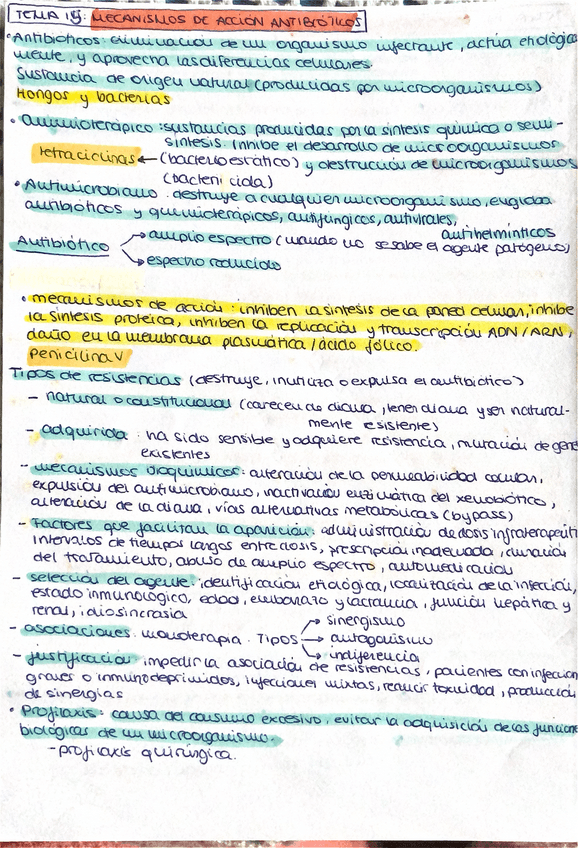 TEMA 15: MECANISMOS DE ACCIÓN ANTIBIÓTICOS
• Antibióticos: eliminación de un organismo infectante, actúa etiológica
mente, y aprovecha las diferencias celulares.
Sustancia de origen natural (producidas por microorganismos)
Hongos y bacterias
• Quimioterápico: sustancias producidas por la síntesis química o semi-
síntesis. Inhibe el desarrollo de microorganismos
tetraciclinas ← (bacteriostático) y destrucción de microorganismos
(bactericida)
• Antimicrobiano: destruye a cualquier microorganismo, engloba
antibióticos y quimioterápicos, antifúngicos, antivirales,
antihelmínticos
Antibiótico → amplio espectro (cuando no se sabe el agente patógeno)
→ espectro reducido
• mecanismos de acción: inhiben la síntesis de la pared celular, inhibe
la síntesis proteica, inhiben la replicación y transcripción ADN/ARN,
daño en la membrana plasmática/ácido fólico.
Penicilina V
Tipos de resistencias (destruye, inutiliza o expulsa el antibiótico)
- natural o constitucional (carecen de diana, tener diana y ser natural-
mente resistente)
- adquirida: ha sido sensible y adquiere resistencia, mutación de gene
existentes
- mecanismos bioquímicos: alteración de la permeabilidad celular,
expulsión del antimicrobiano, inactivación enzimática del xenobiótico,
alteración de la diana, vías alternativas metabólicas (bypass)
- Factores que facilitan la aparición: administración de dosis infraterapeuti
intervalos de tiempos largos entre dosis, prescripción inadecuada, duración
del tratamiento, abuso de amplio espectro, automedicación
- selección del agente: identificación etiológica, localización de la infección,
estado inmunológico, edad, embarazo y lactancia, función hepática y
renal, idiosincrasia
- asociaciones: monoterapia. Tipos → sinergismo
→ antagonismo
→ indiferencia
- justificación: impedir la asociación de resistencias, pacientes con infeccion
graves o inmunodeprimidos, infecciones mixtas, reducir toxicidad, producción
de sinergias
• Profilaxis: causa del consumo excesivo, evitar la adquisición de las funcione
biológicas de un microorganismo.
- profilaxis quirúrgica.